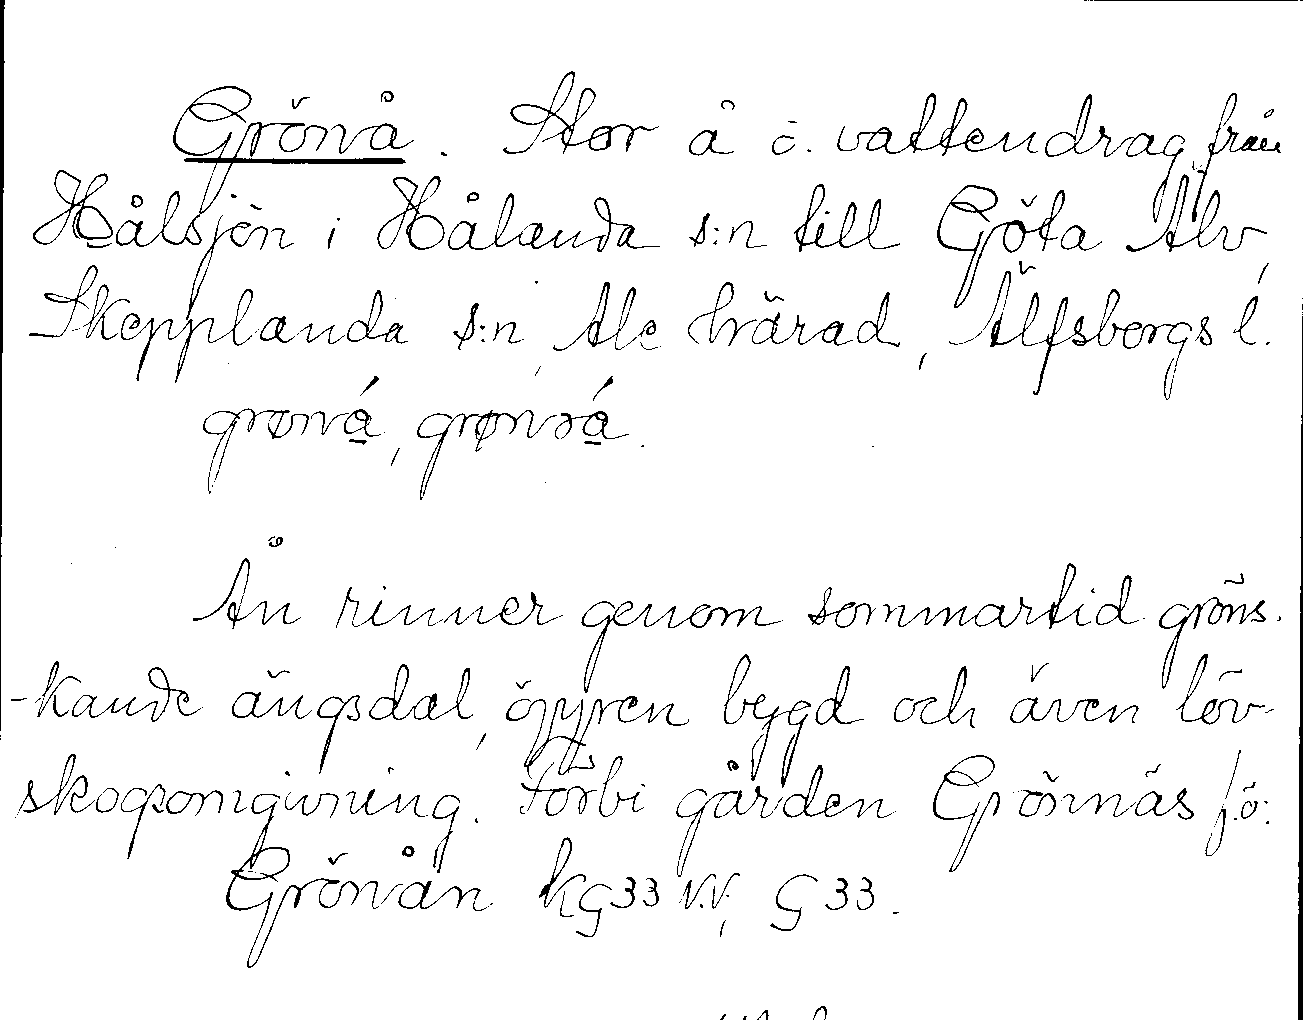 Grönå. Stor å o. vattendrag från
Hålsjön i Hålanda s:n till Göta Älv,
Skepplanda s:n, Ale härad, Älfsborgs l.
grøná, grønsá.
Ån rinner genom sommartid gröns-
-kande ängsdal, öppen bygd och även löv-
skogsomgivning. Förbi gården Grönnäs f.ö:
Grönån KG33 N.V, G 33.